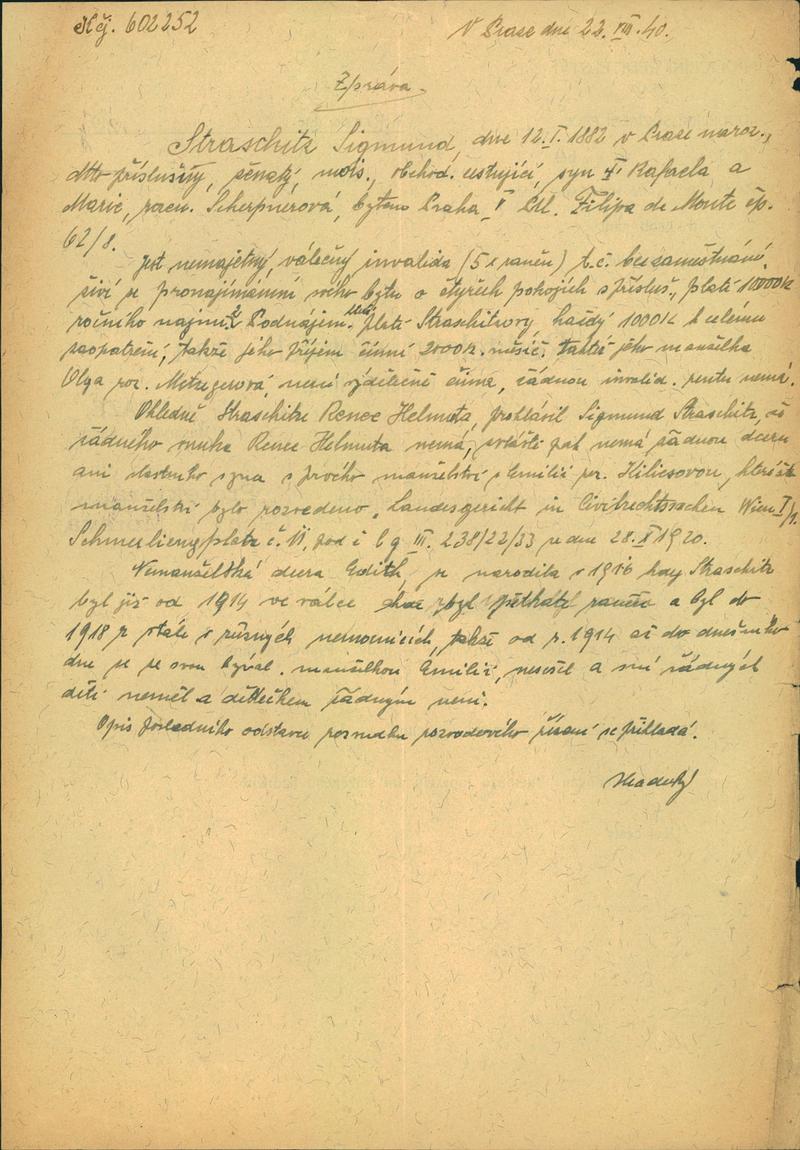 K čj. 602252
V Praze dne 22. VIII. 40.
Zpráva.
Straschitz Sigmund, dne 12. I. 1882 v Praze naroz.,
dtto příslušný, ženatý, mojs., obchod. cestující, syn † Rafaela a
Marie, roz. bytem Praha V Ul. Filipa de Monte čp.
62/8.
Jest nemajetný, válečný invalida (5 x raněn) t. č. bez zaměstnání,
živí se pronajímáním svého bytu o čtyřech pokojích s přísluš., platí 10000 K
ročního nájmu. Podnájem. platí Straschitzovy, každý 1000 K k celému
zaopatření, takže jeho příjem činní 2000 K. měsíč. taktéž jeho manželka
Olga roz. Metzgerová, není výdělečně činna, žádnou invalid. rentu nemá.
Ohledně Straschitze Renee Helmuta, prohlásil Sigmund Straschitz, že
žádného vnuka Renee Helmuta nemá, zvláště pak nemá žádnou dceru
ani vlastního syna z prvého manželství s Emilií roz. kteréžto
manželství bylo rozvedeno „Landesgericht in Civilrechtssachen Wien I/1.
Schmerlingplatz č. 11, pod č. Cg III. 238/22/33 ze dne 28. X 1920.
Nemanželská dcera Edith, se narodila r 1916 kdy Straschitz
byl již od 1914 ve válce kde byl pětkráte raněn a byl do
1918 r stále v různých nemocnicích, takže od r. 1914 až do dnešního
dne se se svou býval. manželkou Emilií, nesešel a s ní žádných
dětí neměl a dědečkem žádným není.
Opis posledního odstavce rozsudku rozvodového řízení se přikládá.